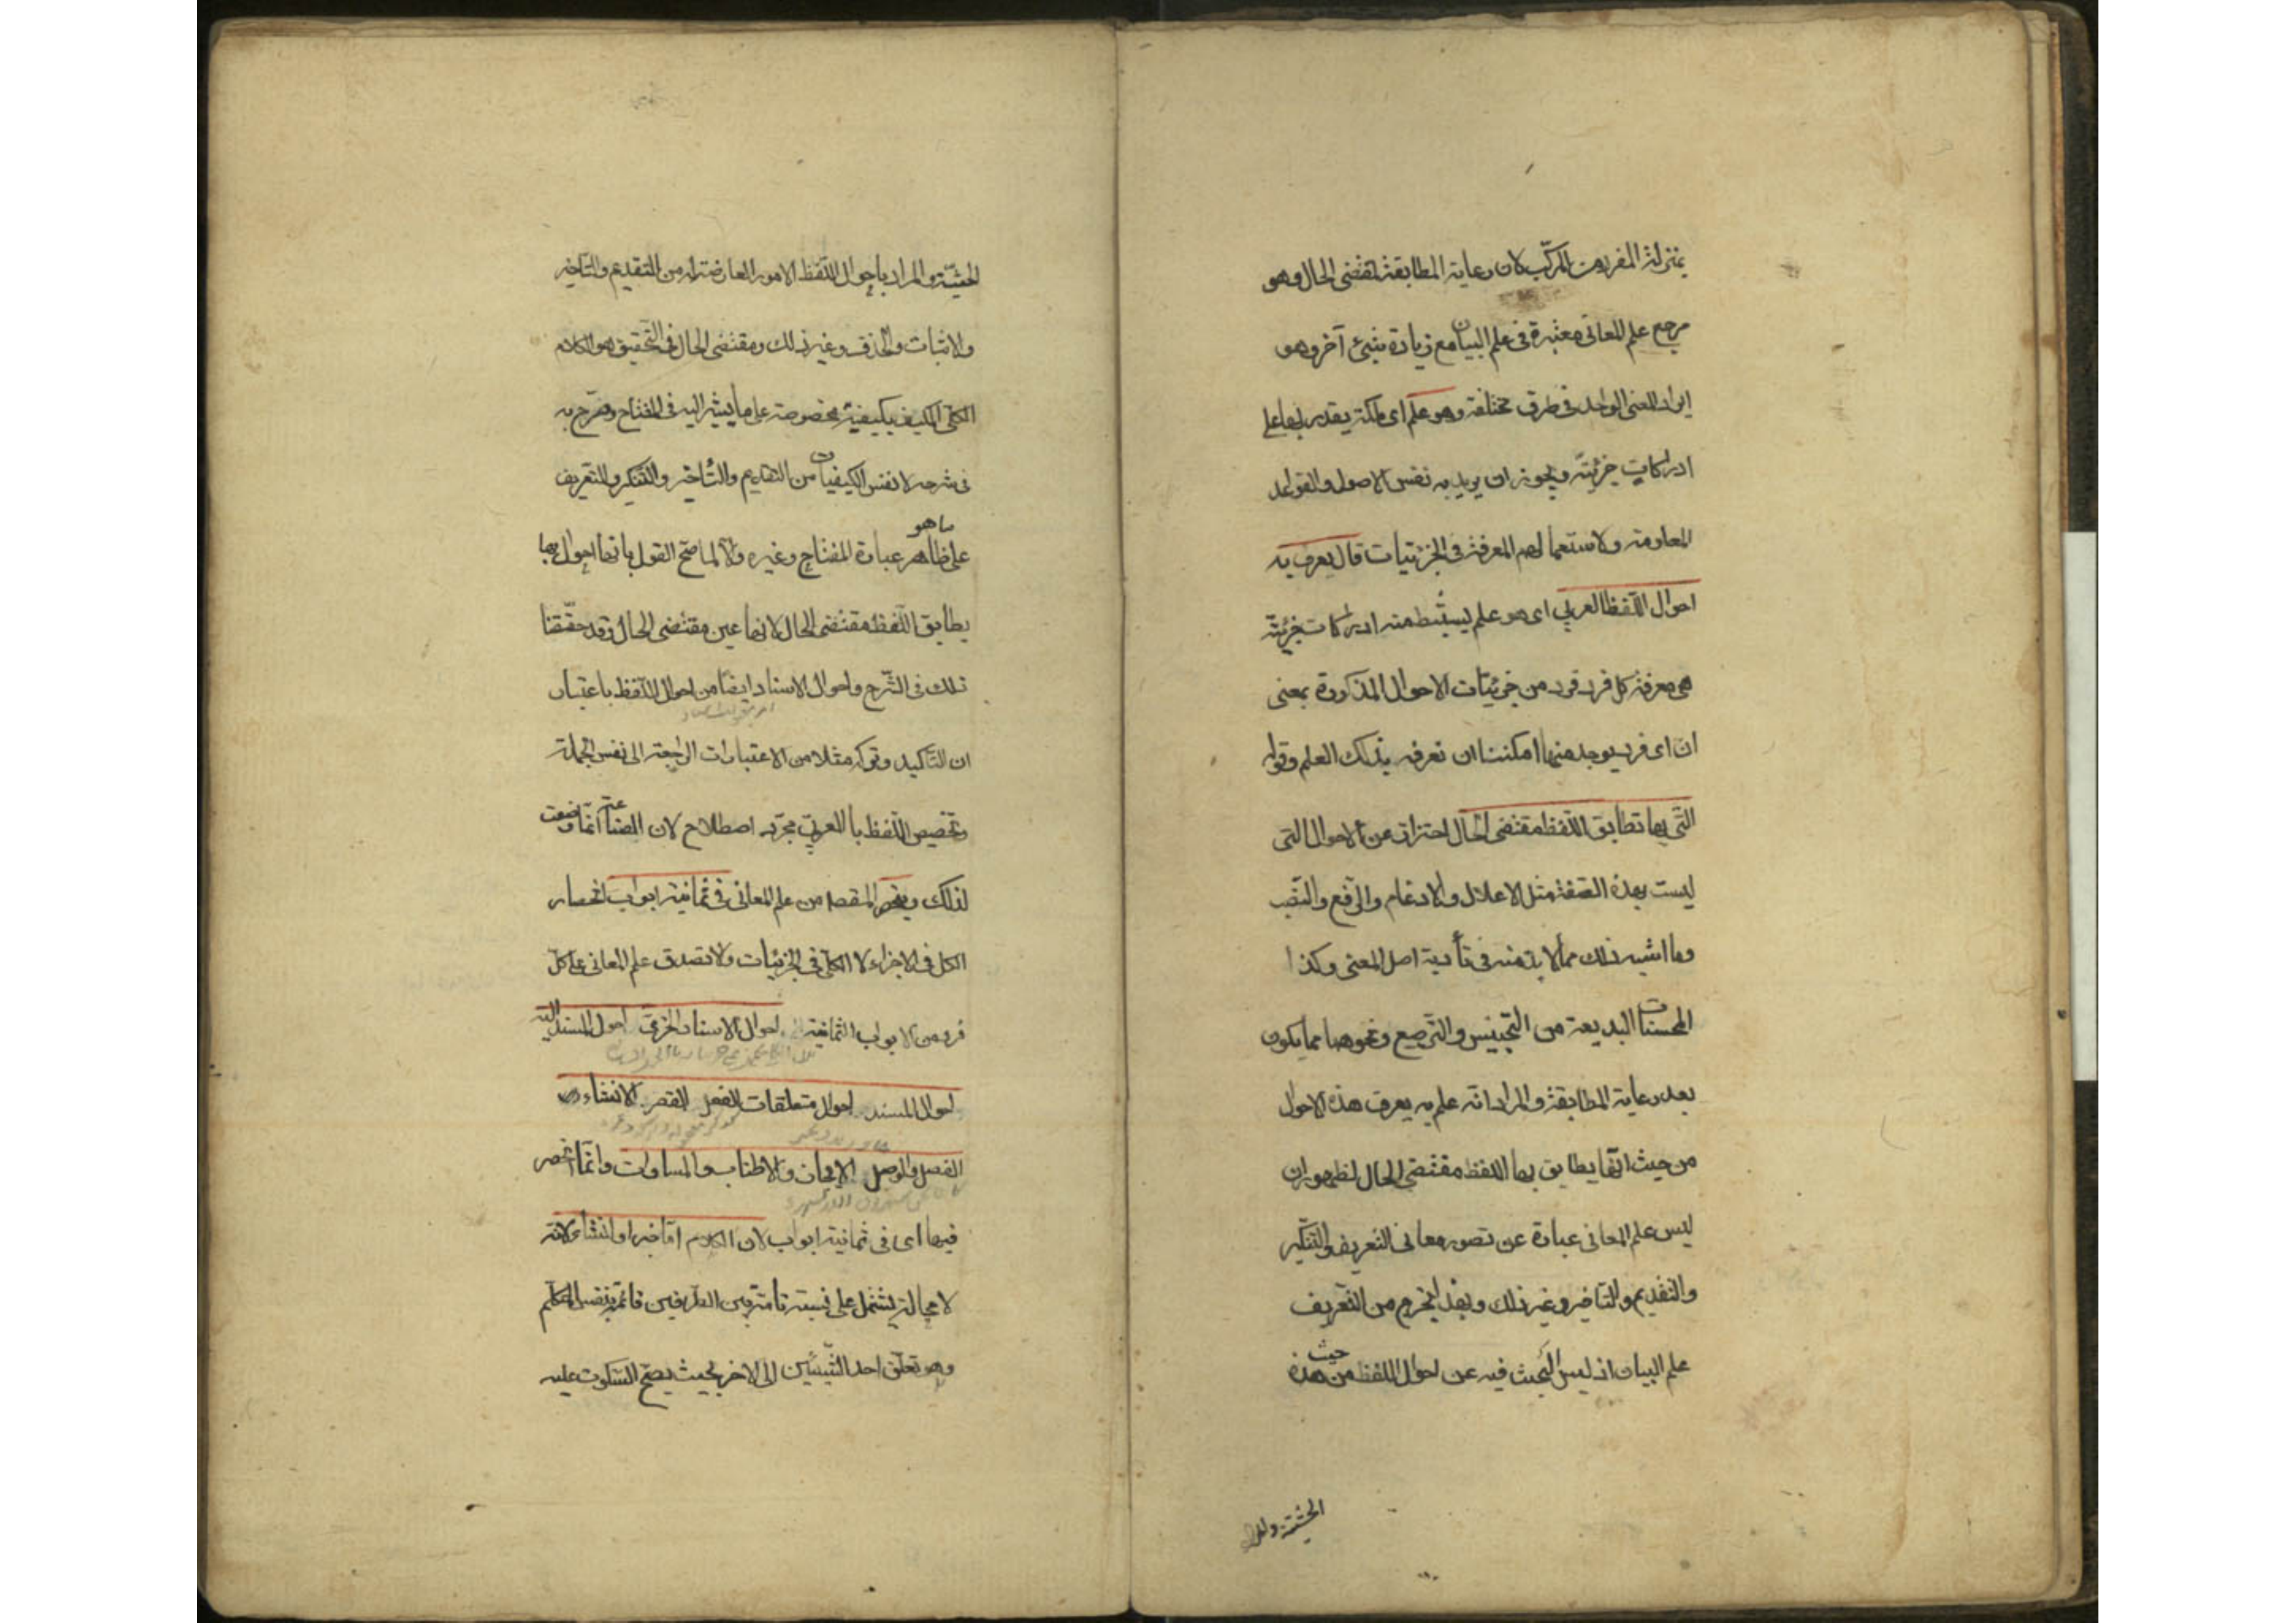 بمنزلة المفرد من المركّب لان رعاية المطابقة لمقتضى الحال وهو
مرجع علم المعانى معتبرة فى علم البيان مع زيادة شئ آخر وهو
ايراد المعنى الواحد فى طرق مختلفة وهو علم اى ملكة يقتدر بها على
ادراكات جزئيّة ويجوز ان يريد به نفس الاصول والقواعد
المعلومة ولاستعمالهم المعرفة فى الجزئيات قال يعرف به
احوال اللّفظ العربي اى هو علم يستنبط منه ادراكات جزئيّة
هى معرفة كل فرد فرد من جزئيّات الاحوال المذكورة بمعنى
انّ اى فرد يوجد منها امكننا ان نعرفه بذلك العلم وقوله
الّتى بها تطابق اللّفظ مقتضى الحال احتراز عن الاحوال التى
ليست بهذه الصّفة مثل الاعلال والادغام والرّفع والنّصب
وما اشبه ذلك مما لا بدّ منه فى تأدية اصل المعنى وكذا
المحسنات البديعة من التّجنيس والتّرصيع ونحوهما مما يكون
بعد رعاية المطابقة والمراد انّه علم به يعرف هذه الاحوال
من حيث انّها يطابق بها اللفظ مقتضى الحال لظهور ان
ليس علم المعانى عبارة عن تصور معانى التّعريف والتّنكير
والتقديم والتّاخير وغير ذلك وبهذا يخرج من التّعريف
علم البيان اذ ليس البحث فيه عن احوال اللفظ من حيث هذه
الحيثيّة والمراد
الحيثيّة والمراد باحوال اللّفظ الامور العارضة له من التقديم والتّاخير
والاثبات والحذف وغير ذلك ومقتضى الحال فى التّحقيق هو الكلام
الكلّى المكيف بكيفيّة مخصوصة على ما يشير اليه فى المفتاح وصرّح به
فى شرحه لا نفس الكيفيات من التقديم والتّأخير والتّنكير والتّعريف
على ما هو ظاهر عبارة المفتاح وغيره والّا لما صحّ القول بانّها احوال بها
يطابق اللّفظ مقتضى الحال لانها عين مقتضى الحال وقد حقّقنا
ذلك فى الشّرح واحوال الاسناد ايضاً من احوال اللّفظ باعتبار
ان التّأكيد وتركه مثلا من الاعتبارات الراجعة الى نفس الجملة
وتخصيص اللّفظ بالعربيّ مجرّد اصطلاح لان الصّناعة انّما وضعت
لذلك وينحصر المقصد من علم المعانى فى ثمانية ابواب انحصار
الكل فى الاجزاء لا الكلّى فى الجزئيات والّا لصدق علم المعانى على كلّ
فرد من الابواب الثّمانية احوال الاسناد الخبرىّ احوال المسند اليه
احوال المسند احوال متعلقات الفعل القصر الانشاء
الفصل والوصل الايجاز والاطناب والمساوات وانّما انحصر
فيها اى فى ثمانية ابواب لان الكلام امّا خبر او انشاء لانّه
لا محالة يشتمل على نسبة تامّة بين الطّرفين قائمة بنفس المتكلّم
وهو تعلّق احد الشّيئين الى الاخر بحيث يصحّ السّكوت عليه